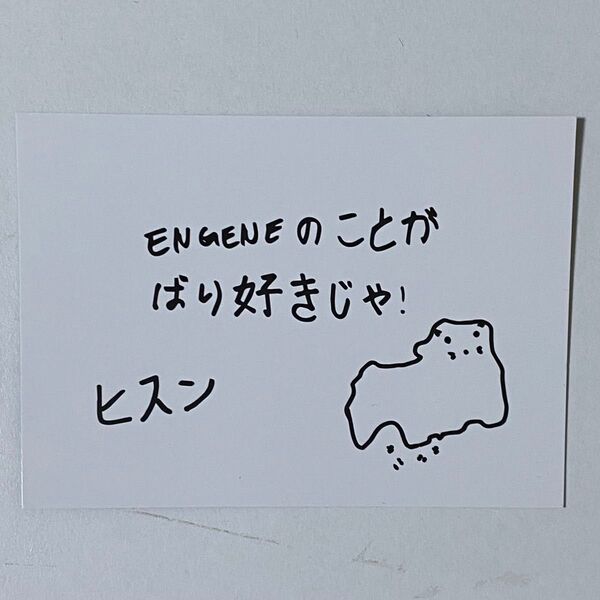 ENGENEのことが
ばり好きじゃ!
ヒスン